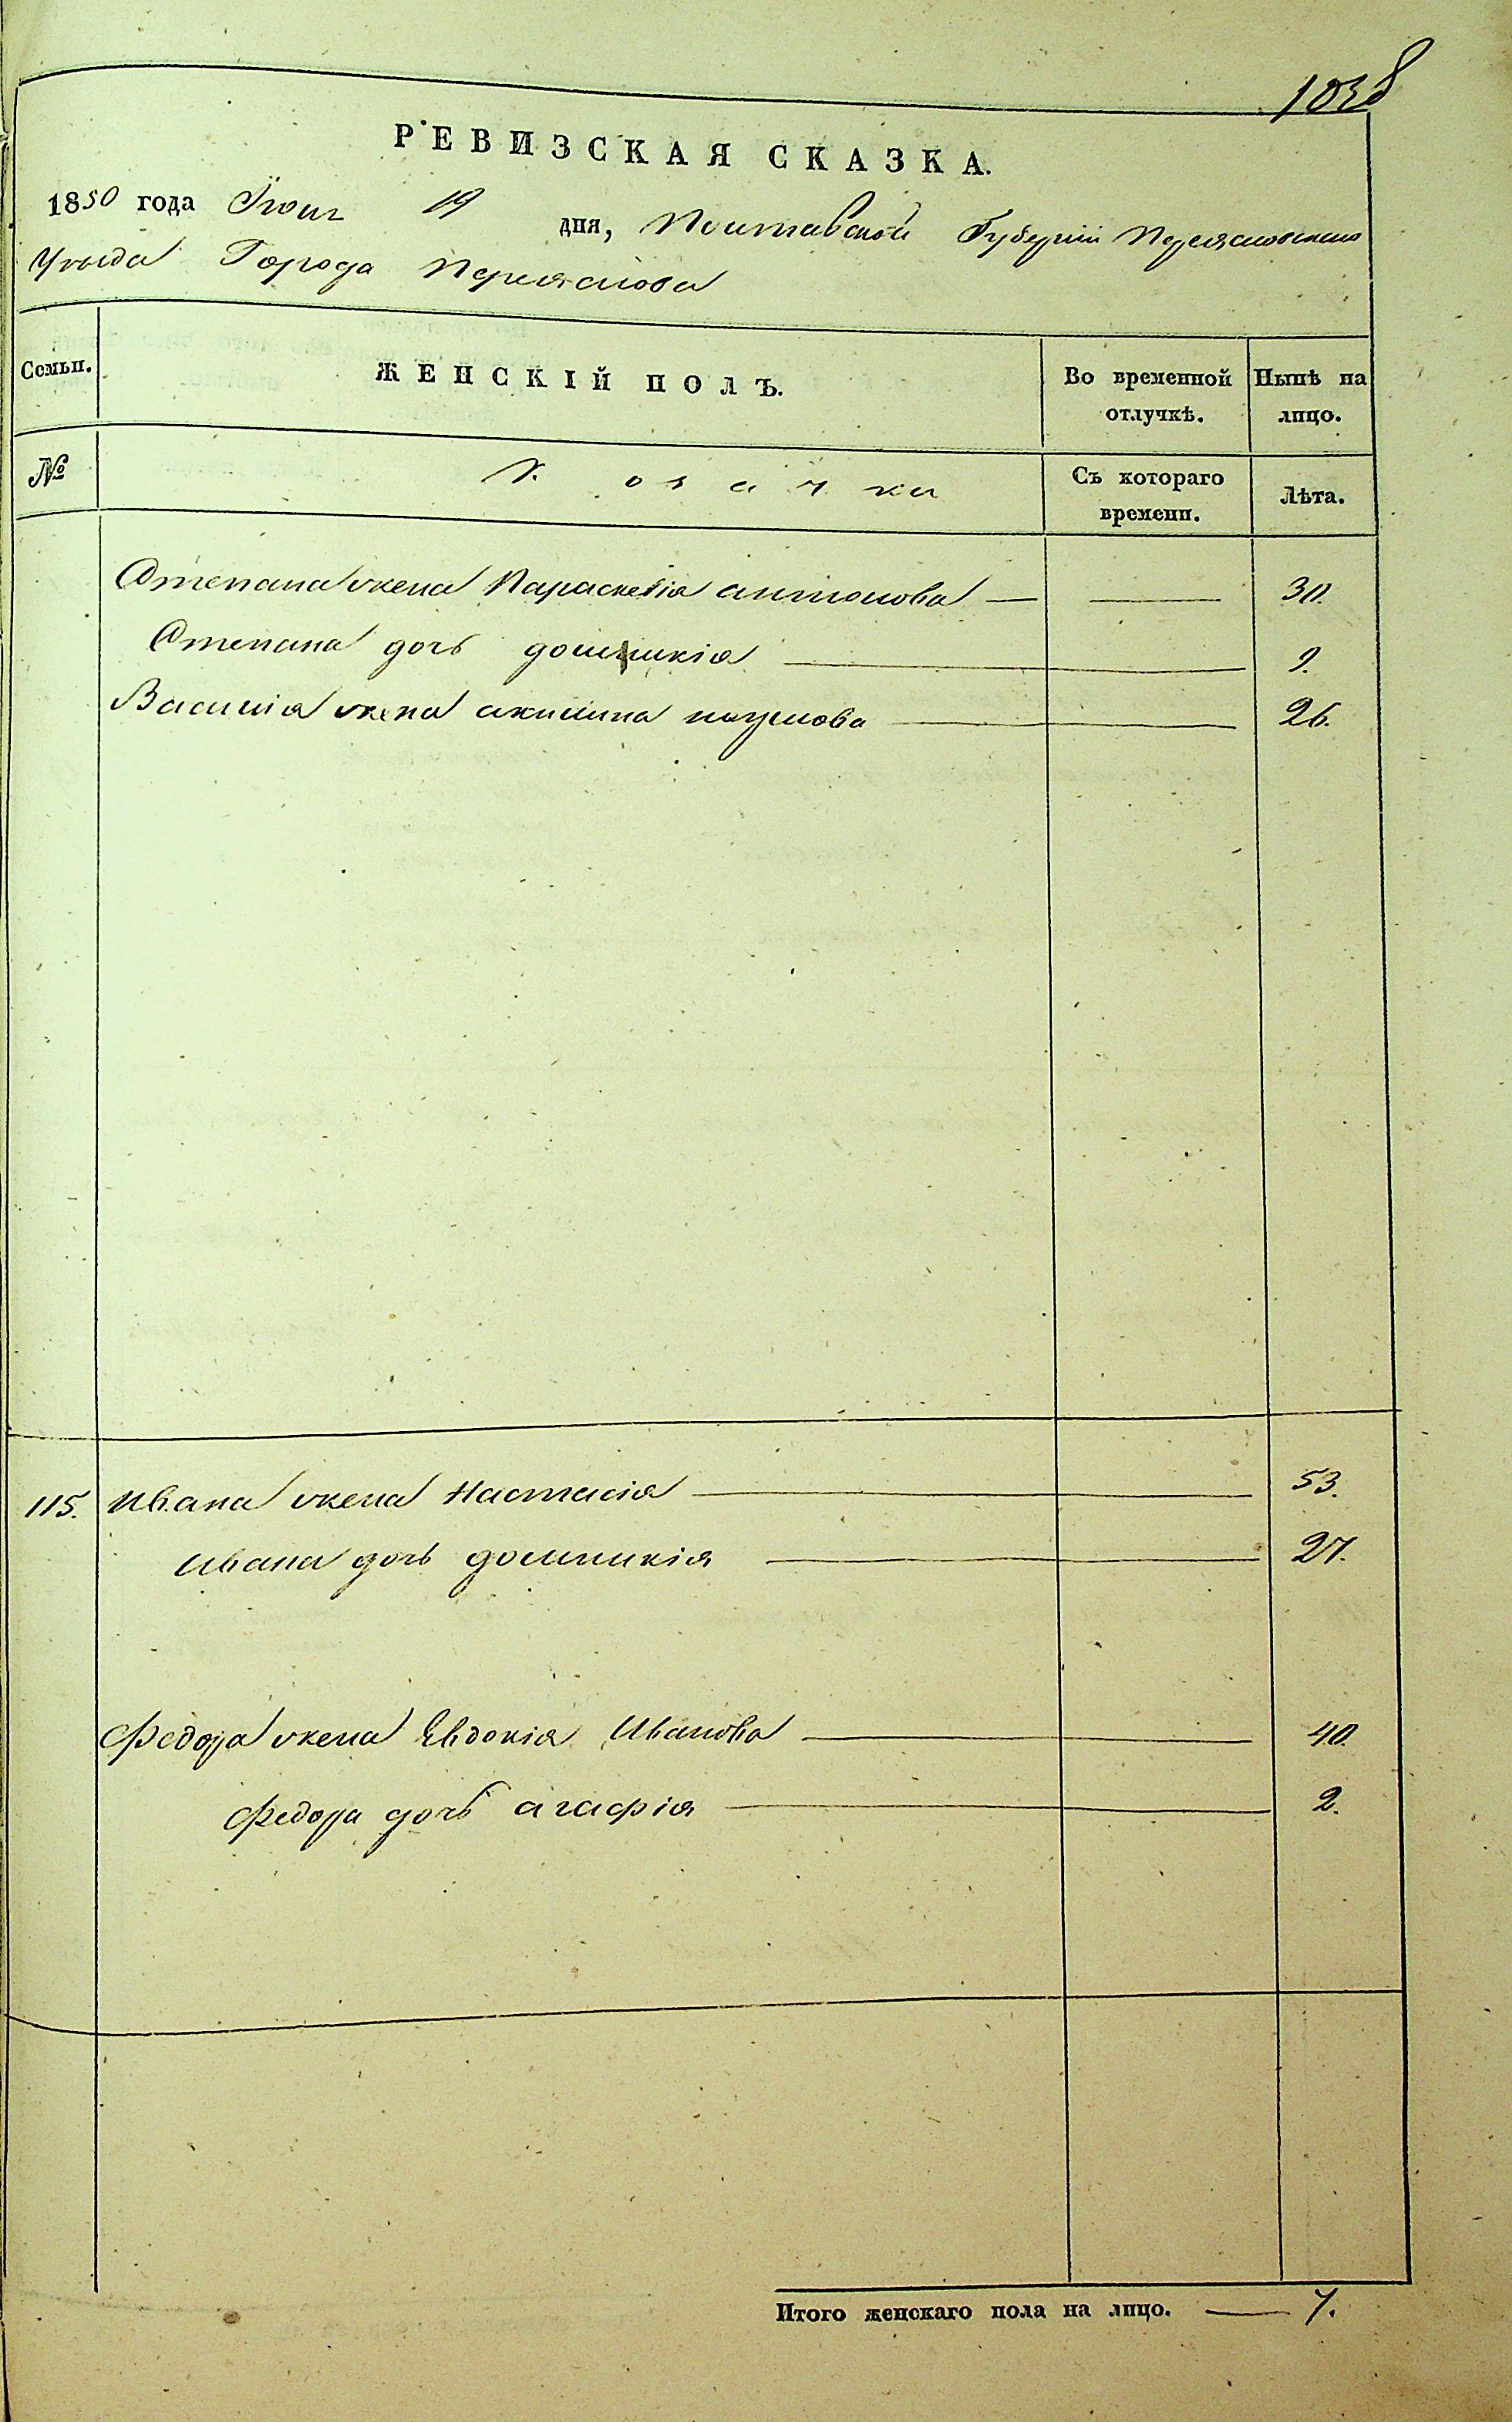 1038
РЕВИЗСКАЯ СКАЗКА.
1850 года Іюня 19 дня, Полтавской Губерніи Переясловскаго
Уезда Города Переяслова
Семьи. ЖЕНСКІЙ ПОЛЪ. Во временной отлучкѣ. Нынѣ на лицо.
№ Козачки Съ котораго времени. Лѣта.
Степана жена Параскевія антонова — — 30.
Степана дочь домникія — 9.
Василія жена акилина наумова — 26.
115. Ивана жена Настасія — 53.
Ивана дочь домникія — 27.
Федора жена Евдокія Иванова — 40.
Федора дочь агафія — 2.
Итого женскаго пола на лицо. — 7.